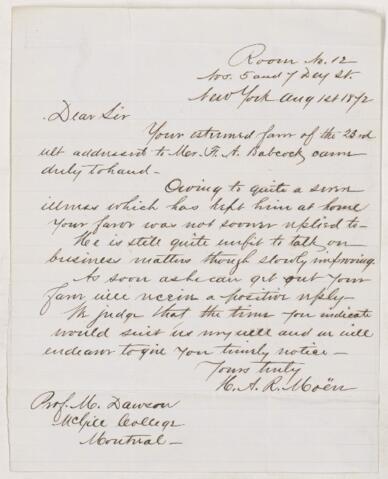 Room No. 12
Nos. 5 and 7 Dey St.
New York Aug 1st 1872
Dear Sir
Your esteemed favr of the 23rd
ult addressed to Mr. F. A. Babcock came
duly to hand -
Owing to quite a severe
illness which has kept him at home
your favor was not sooner replied to -
He is still quite unfit to talk on
business matters though slowly improving.
As soon as he can get out your
favr will receive a positive reply -
We judge that the time you indicate
would suit us very well and we will
endeavor to give you timely notice -
Yours truly
H. A. R. Moën
Prof. M. Dawson
McGill College
Montreal -